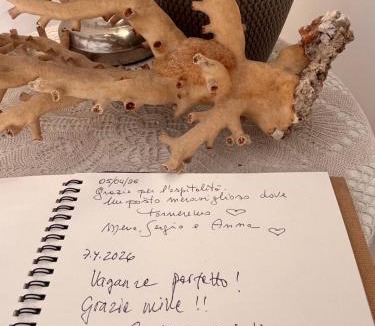 05/04/26
Grazie per l'ospitalità.
Un posto meraviglioso dove
torneremo ♡
Sergio e Anna ♡
7.4.2026
Vaganze perfetto!
Grazie mille !!